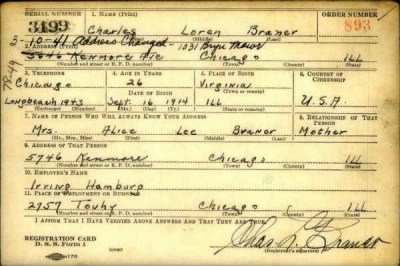 SERIAL NUMBER 1. NAME (Print) ORDER NUMBER
3199 Charles Loren Braner 893
(First) (Middle) (Last)
3-10-41 Address Changed - 1031 Bryn Mawr
2. ADDRESS (Print)
5646 Kenmore Ave Chicago Ill
(Number and street or R. F. D. number) (Town) (County) (State)
3. TELEPHONE 4. AGE IN YEARS 5. PLACE OF BIRTH 6. COUNTRY OF CITIZENSHIP
Chicago 26 Virginia
DATE OF BIRTH
Longbeach 1943 Sept. 16 1914 Ill U.S.A.
(Exchange) (Number) (Mo.) (Day) (Yr.) (State or country)
7. NAME OF PERSON WHO WILL ALWAYS KNOW YOUR ADDRESS 8. RELATIONSHIP OF THAT PERSON
Mrs. Alice Lee Braner Mother
(Mr., Mrs., Miss) (First) (Middle) (Last)
9. ADDRESS OF THAT PERSON
5746 Kenmore Chicago Ill
(Number and street or R. F. D. number) (Town) (County) (State)
10. EMPLOYER'S NAME
Irving Hamburg
11. PLACE OF EMPLOYMENT OR BUSINESS
2757 Touhy Chicago Ill
(Number and street or R. F. D. number) (Town) (County) (State)
I AFFIRM THAT I HAVE VERIFIED ABOVE ANSWERS AND THAT THEY ARE TRUE.
REGISTRATION CARD
D. S. S. Form 1
Chas. L. Braner